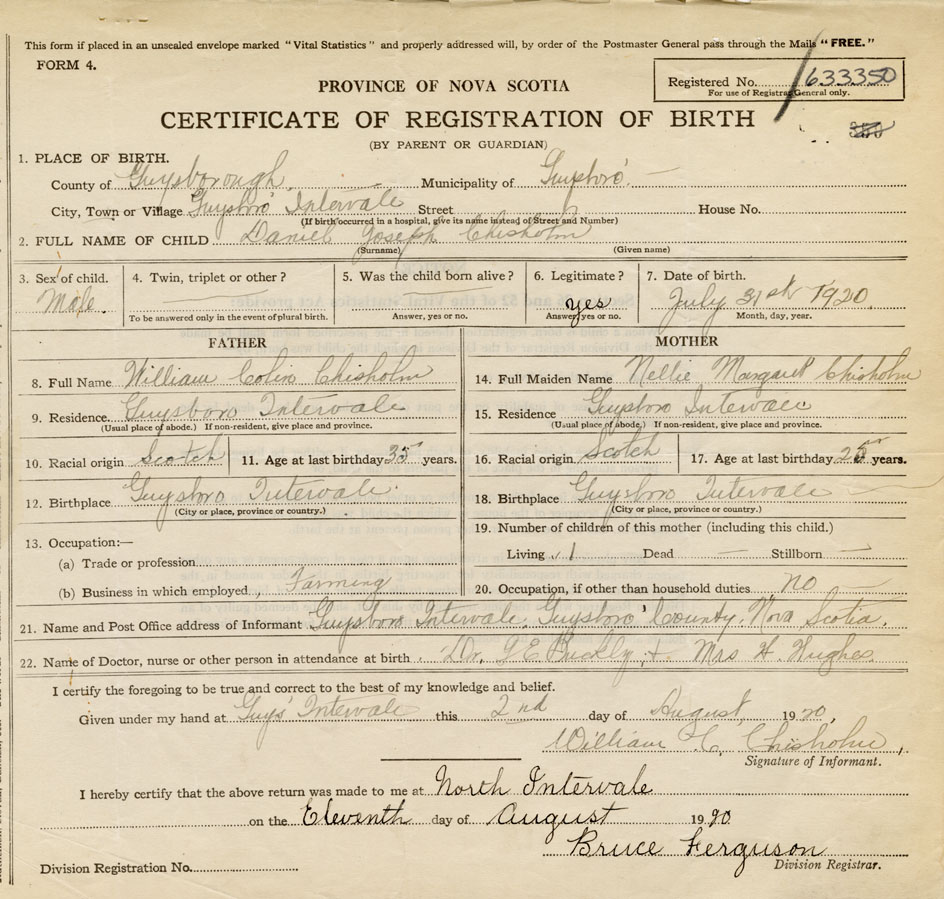 This form if placed in an unsealed envelope marked "Vital Statistics" and properly addressed will, by order of the Postmaster General pass through the Mails "FREE."
FORM 4.
Registered No. 633350
For use of Registrar General only.
PROVINCE OF NOVA SCOTIA
CERTIFICATE OF REGISTRATION OF BIRTH
(BY PARENT OR GUARDIAN)
1. PLACE OF BIRTH.
County of Guysborough Municipality of Guysboro'
City, Town or Village Guysboro' Intervale Street House No.
(If birth occurred in a hospital, give its name instead of Street and Number)
2. FULL NAME OF CHILD Daniel Joseph Chisholm
(Surname) (Given name)
3. Sex of child. 4. Twin, triplet or other? 5. Was the child born alive? 6. Legitimate? 7. Date of birth.
Male. yes July 31st 1920.
To be answered only in the event of plural birth. Answer yes or no. Answer yes or no. Month, day, year.
FATHER MOTHER
8. Full Name William Colin Chisholm 14. Full Maiden Name Nellie Margaret Chisholm
9. Residence. Guysboro Intervale 15. Residence Guysboro Intervale
(Usual place of abode.) If non-resident, give place and province. (Usual place of abode.) If non-resident, give place and province.
10. Racial origin Scotch 11. Age at last birthday 35 years. 16. Racial origin Scotch 17. Age at last birthday years.
12. Birthplace Guysboro Intervale. 18. Birthplace Guysboro Intervale
(City or place, province or country.) (City or place, province or country.)
13. Occupation:— 19. Number of children of this mother (including this child.)
(a) Trade or profession Living 1 Dead — Stillborn —
(b) Business in which employed Farming 20. Occupation, if other than household duties no
21. Name and Post Office address of Informant Guysboro Intervale. Guysboro' County. Nova Scotia.
22. Name of Doctor, nurse or other person in attendance at birth Dr. Buckly + Mrs H. Hughes.
I certify the foregoing to be true and correct to the best of my knowledge and belief.
Given under my hand at Guys' Intervale this 2nd day of August, 1920,
William C. Chisholm,
Signature of Informant.
I hereby certify that the above return was made to me at North Intervale
on the Eleventh day of August 1920
Bruce Ferguson
Division Registration No. Division Registrar.